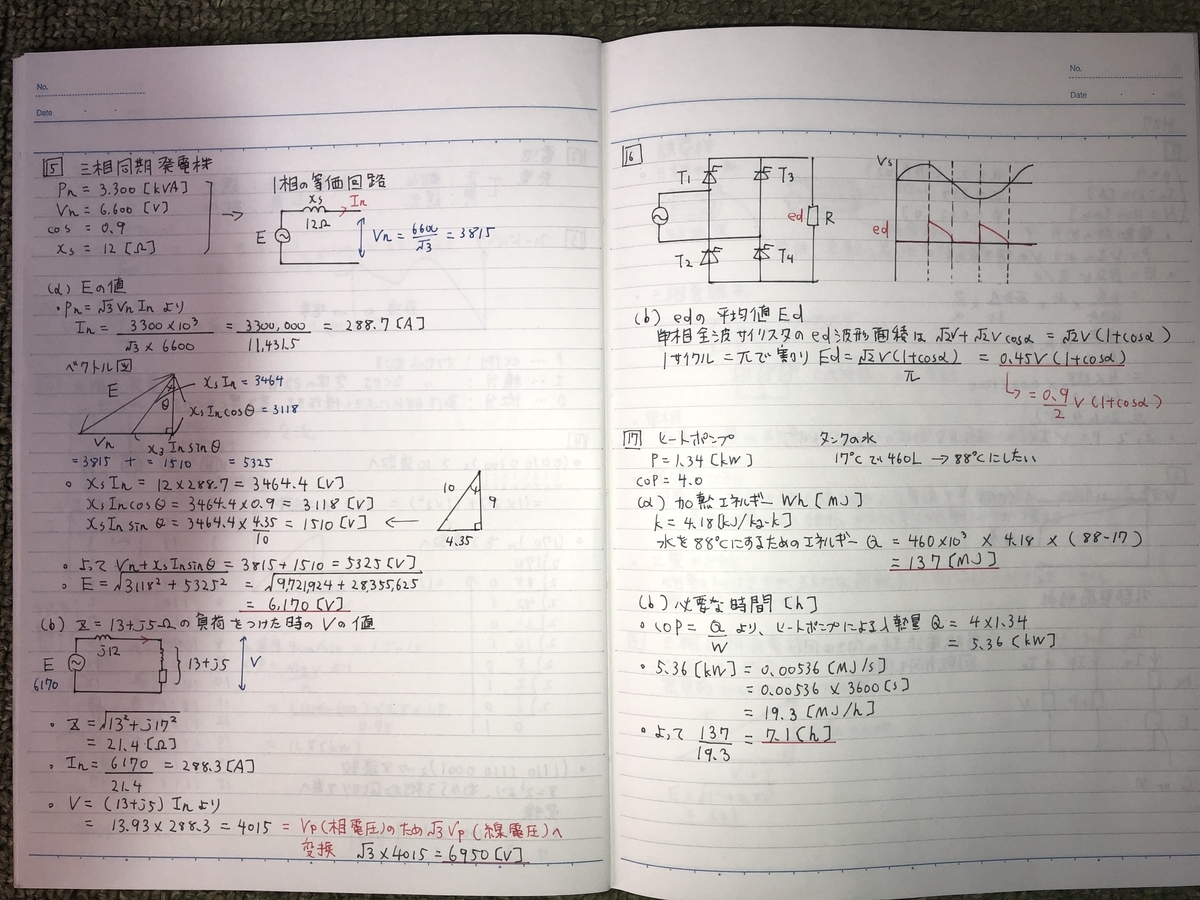 No.
Date
15 三相同期発電機
Pn = 3.300 [kVA]
Vn = 6.600 [V]
cos = 0.9
xs = 12 [Ω]
→
1相の等価回路
xs
In
12Ω
E
Vn = 6600/√3 = 3815
(a) Eの値
・Pn = √3 Vn In より
In = 3300×10³/√3×6600 = 3300,000/11,431.5 = 288.7 [A]
ベクトル図
E
xs In = 3464
θ
xs In cosθ = 3118
Vn
xs In sinθ
= 3815 + = 1510 = 5325
○ xs In = 12 × 288.7 = 3464.4 [V]
xs In cosθ = 3464.4×0.9 = 3118 [V]
xs In sinθ = 3464.4×4.35/10 = 1510 [V] ←
10
9
4.35
○ よって Vn + xs In sinθ = 3815 + 1510 = 5325 [V]
○ E = √3118² + 5325² = √9,721,924 + 28,355,625
= 6,170 [V]
(b) Z = 13+j5Ω の負荷をつけた時のVの値
j12
E
6170
13+j5
V
・Z = √13² + j17²
= 21.4 [Ω]
・In = 6170/21.4 = 288.3 [A]
・V = (13+j5) In より
= 13.93 × 288.3 = 4015 = Vp(相電圧)のため √3 Vp (線電圧)へ
変換 √3 × 4015 = 6950 [V]
No.
Date
16
T1
T3
ed
R
T2
T4
Vs
ed
(b) edの平均値 Ed
単相全波サイリスタの ed波形面積は √2V + √2V cosα = √2V (1+cosα)
1サイクル = πで割り Ed = √2V (1+cosα)/π = 0.45V (1+cosα)
↳ = 0.9/2 V (1+cosα)
17 ヒートポンプ
タンクの水
P = 1.34 [kW]
17℃で460L → 88℃にしたい
COP = 4.0
(a) 加熱エネルギー Wh [MJ]
k = 4.18 [kJ/kg・k]
水を88℃にするためのエネルギー Q = 460×10³ × 4.18 × (88-17)
= 137 [MJ]
(b) 必要な時間 [h]
○ COP = Q/W より、ヒートポンプによる入熱量 Q = 4×1.34
= 5.36 [kW]
・5.36 [kW] = 0.00536 [MJ/s]
= 0.00536 × 3600 [s]
= 19.3 [MJ/h]
○ よって 137/19.3 = 7.1 [h]